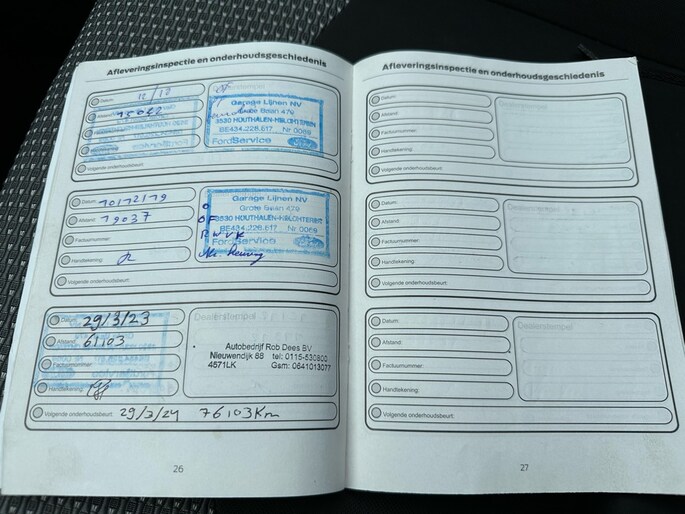 Afleveringsinspectie en onderhoudsgeschiedenis
Datum: 12/18
Afstand: 15062
Volgende onderhoudsbeurt:
Garage Lijnen NV
Grote Baan 479
3530 HOUTHALEN-HELCHTEREN
BE434.226.617 Nr 0069
FordService
Datum: 10/12/19
Afstand: 19037
Factuurnummer:
Handtekening:
Volgende onderhoudsbeurt:
O
OF
RWVK
Garage Lijnen NV
Grote Baan 479
3530 HOUTHALEN-HELCHTEREN
BE434.226.617 Nr 0069
FordService
Datum: 29/3/23
Afstand: 61103
Factuurnummer:
Handtekening:
Dealerstempel
Autobedrijf Rob Dees BV
Nieuwendijk 88 tel: 0115-530800
4571LK Gsm: 0641013077
Volgende onderhoudsbeurt: 29/3/24 76103Km
26
Afleveringsinspectie en onderhoudsgeschiedenis
Datum:
Afstand:
Factuurnummer:
Handtekening:
Volgende onderhoudsbeurt:
Datum:
Afstand:
Factuurnummer:
Handtekening:
Volgende onderhoudsbeurt:
Datum:
Afstand:
Factuurnummer:
Handtekening:
Volgende onderhoudsbeurt:
27